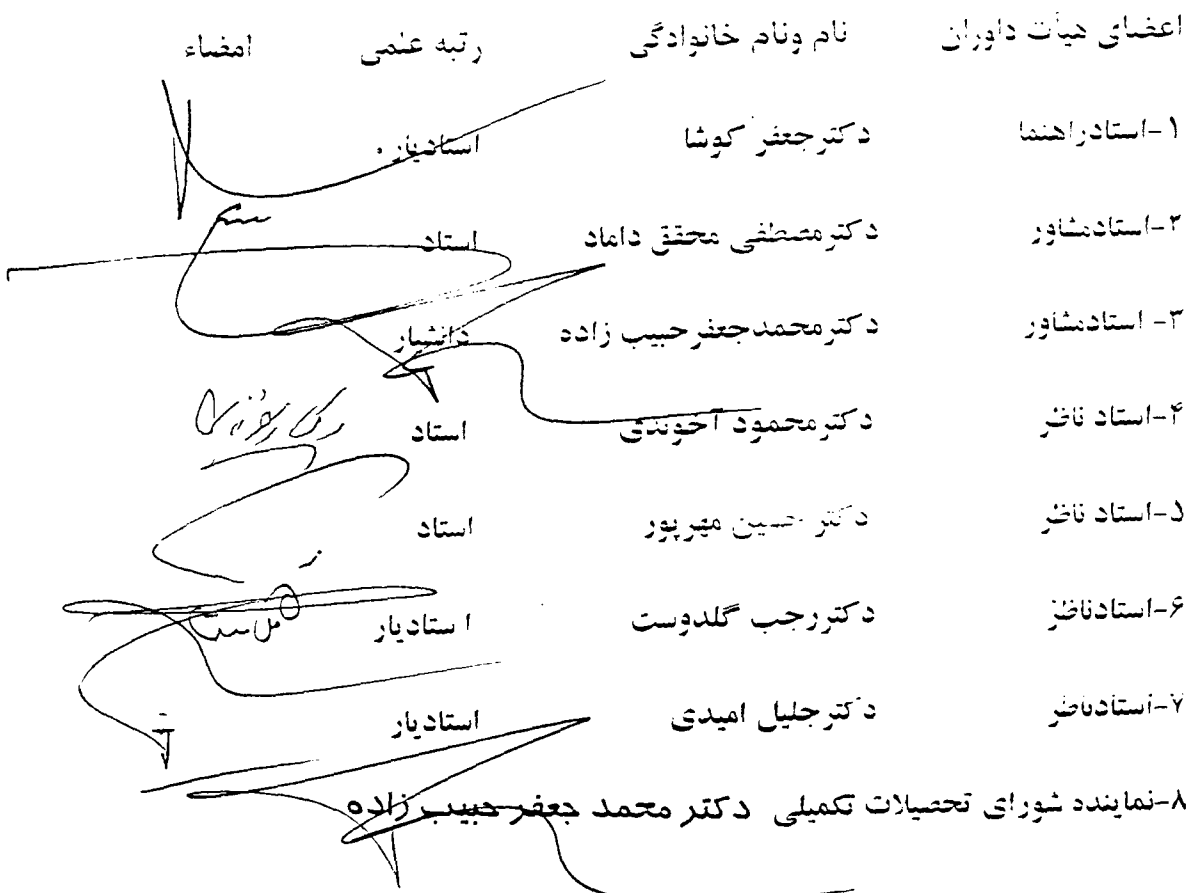 اعضای هیأت داوران نام ونام خانوادگی رتبه علمی امضاء
۱-استادراهنما دکترجعفر کوشا استادیار
۲-استادمشاور دکترمصطفی محقق داماد استاد
۳- استادمشاور دکترمحمدجعفرحبیب زاده دانشیار
۴-استاد ناظر دکترمحمود آخوندی استاد
۵-استاد ناظر دکتر حسین مهرپور استاد
۶-استادناظر دکتررجب گلدوست استادیار
۷-استادناظر دکترجلیل امیدی استادیار
۸-نماینده شورای تحصیلات تکمیلی دکتر محمد جعفر حبیب زاده